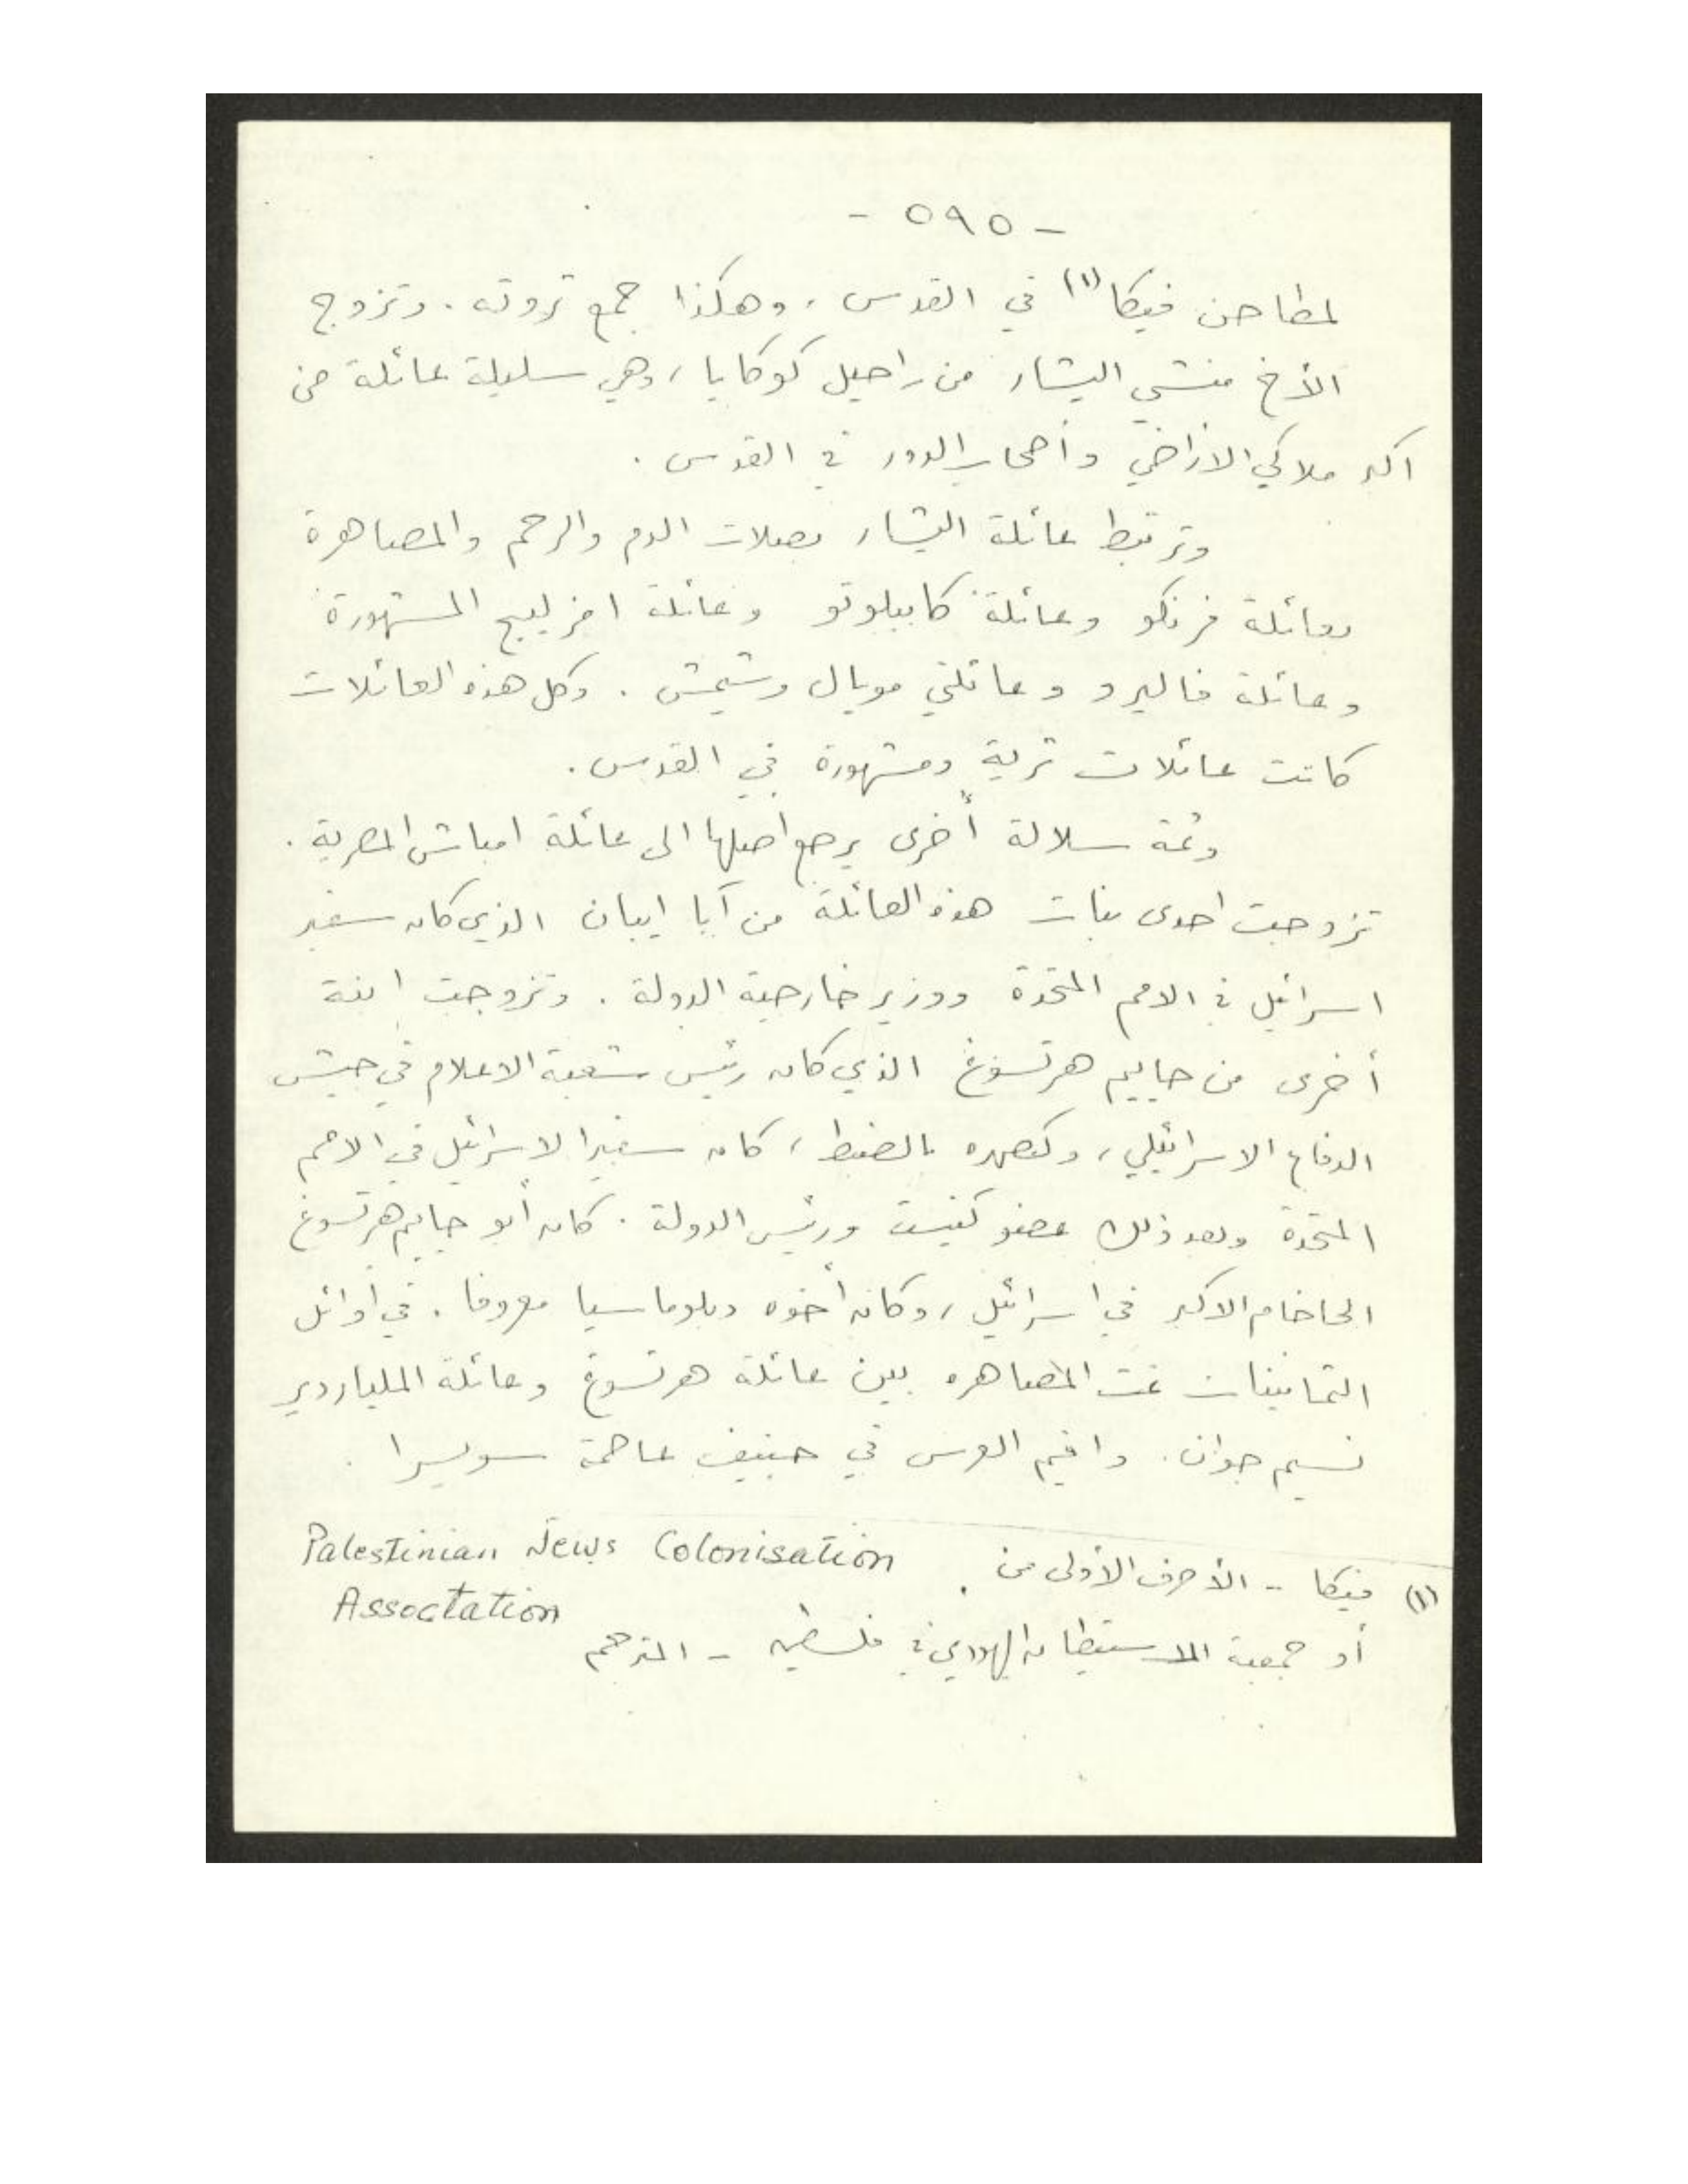 - ٥٩٥ -
لمطاحن فيكا (١) في القدس ، وهكذا جمع ثروته . وتزوج
الأخ منشي اليشار من راحيل كوكايا ، وهي سليلة عائلة من
اكبر ملاكي الاراضي وأصحاب الدور في القدس .
وترتبط عائلة اليشار بصلات الدم والرحم والمصاهرة
بعائلة فرنكو وعائلة كابيلوتو وعائلة امزليبج المشهورة
وعائلة فاليرو وعائلتي مويال وشيمش . وكل هذه العائلات
كانت عائلات ثرية ومشهورة في القدس .
وثمة سلالة أخرى يرجع اصلها الى عائلة امباش المصرية .
تزوجت احدى بنات هذه العائلة من آبا ايبان الذي كان سفير
اسرائيل في الامم المتحدة ووزير خارجية الدولة . وتزوجت ابنة
أخرى من حاييم هرتسوغ الذي كان رئيس شعبة الاعلام في جيش
الدفاع الاسرائيلي ، وكصهره بالضبط ، كان سفيرا لاسرائيل في الامم
المتحدة وبعد ذلك عضو كنيست ورئيس الدولة . كان أبو حاييم هرتسوغ
الحاخام الاكبر في اسرائيل ، وكان أخوه دبلوماسيا معروفا . في أوائل
الثمانينات تمت المصاهره بين عائلة هرتسوغ وعائلة الملياردير
نسيم جوان . واقيم العرس في جنيف عاصمة سويسرا .
(١) فيكا - الأحرف الأولى من . Palestinian Jews Colonisation
Association
أو جمعية الاستيطان اليهودي في فلسطين - المترجم